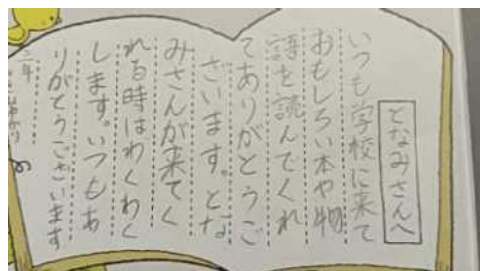 となみさんへ
いつも学校に来て
おもしろい本や物
語を読んでくれ
てありがとうご
ざいます。とな
みさんが来てく
れる時はわくわく
します。いつもあ
りがとうございます
二年